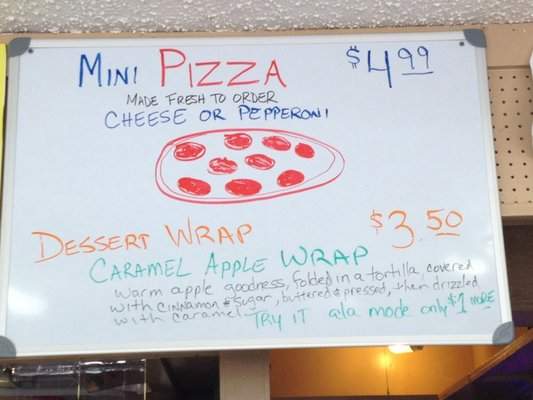 MINI PIZZA $4.99
MADE FRESH TO ORDER
CHEESE OR PEPPERONI
DESSERT WRAP $3.50
CARAMEL APPLE WRAP
warm apple goodness, folded in a tortilla, covered
with cinnamon & sugar, buttered & pressed, then drizzled
with caramel. TRY IT ala mode only $1 MORE